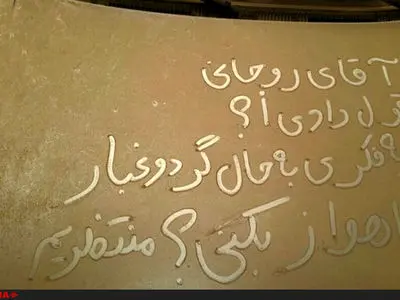 آقای روحانی
قول دادی آ؟
یه فکری به حال گرد و غبار
اهواز بکنی؟ منتظریم